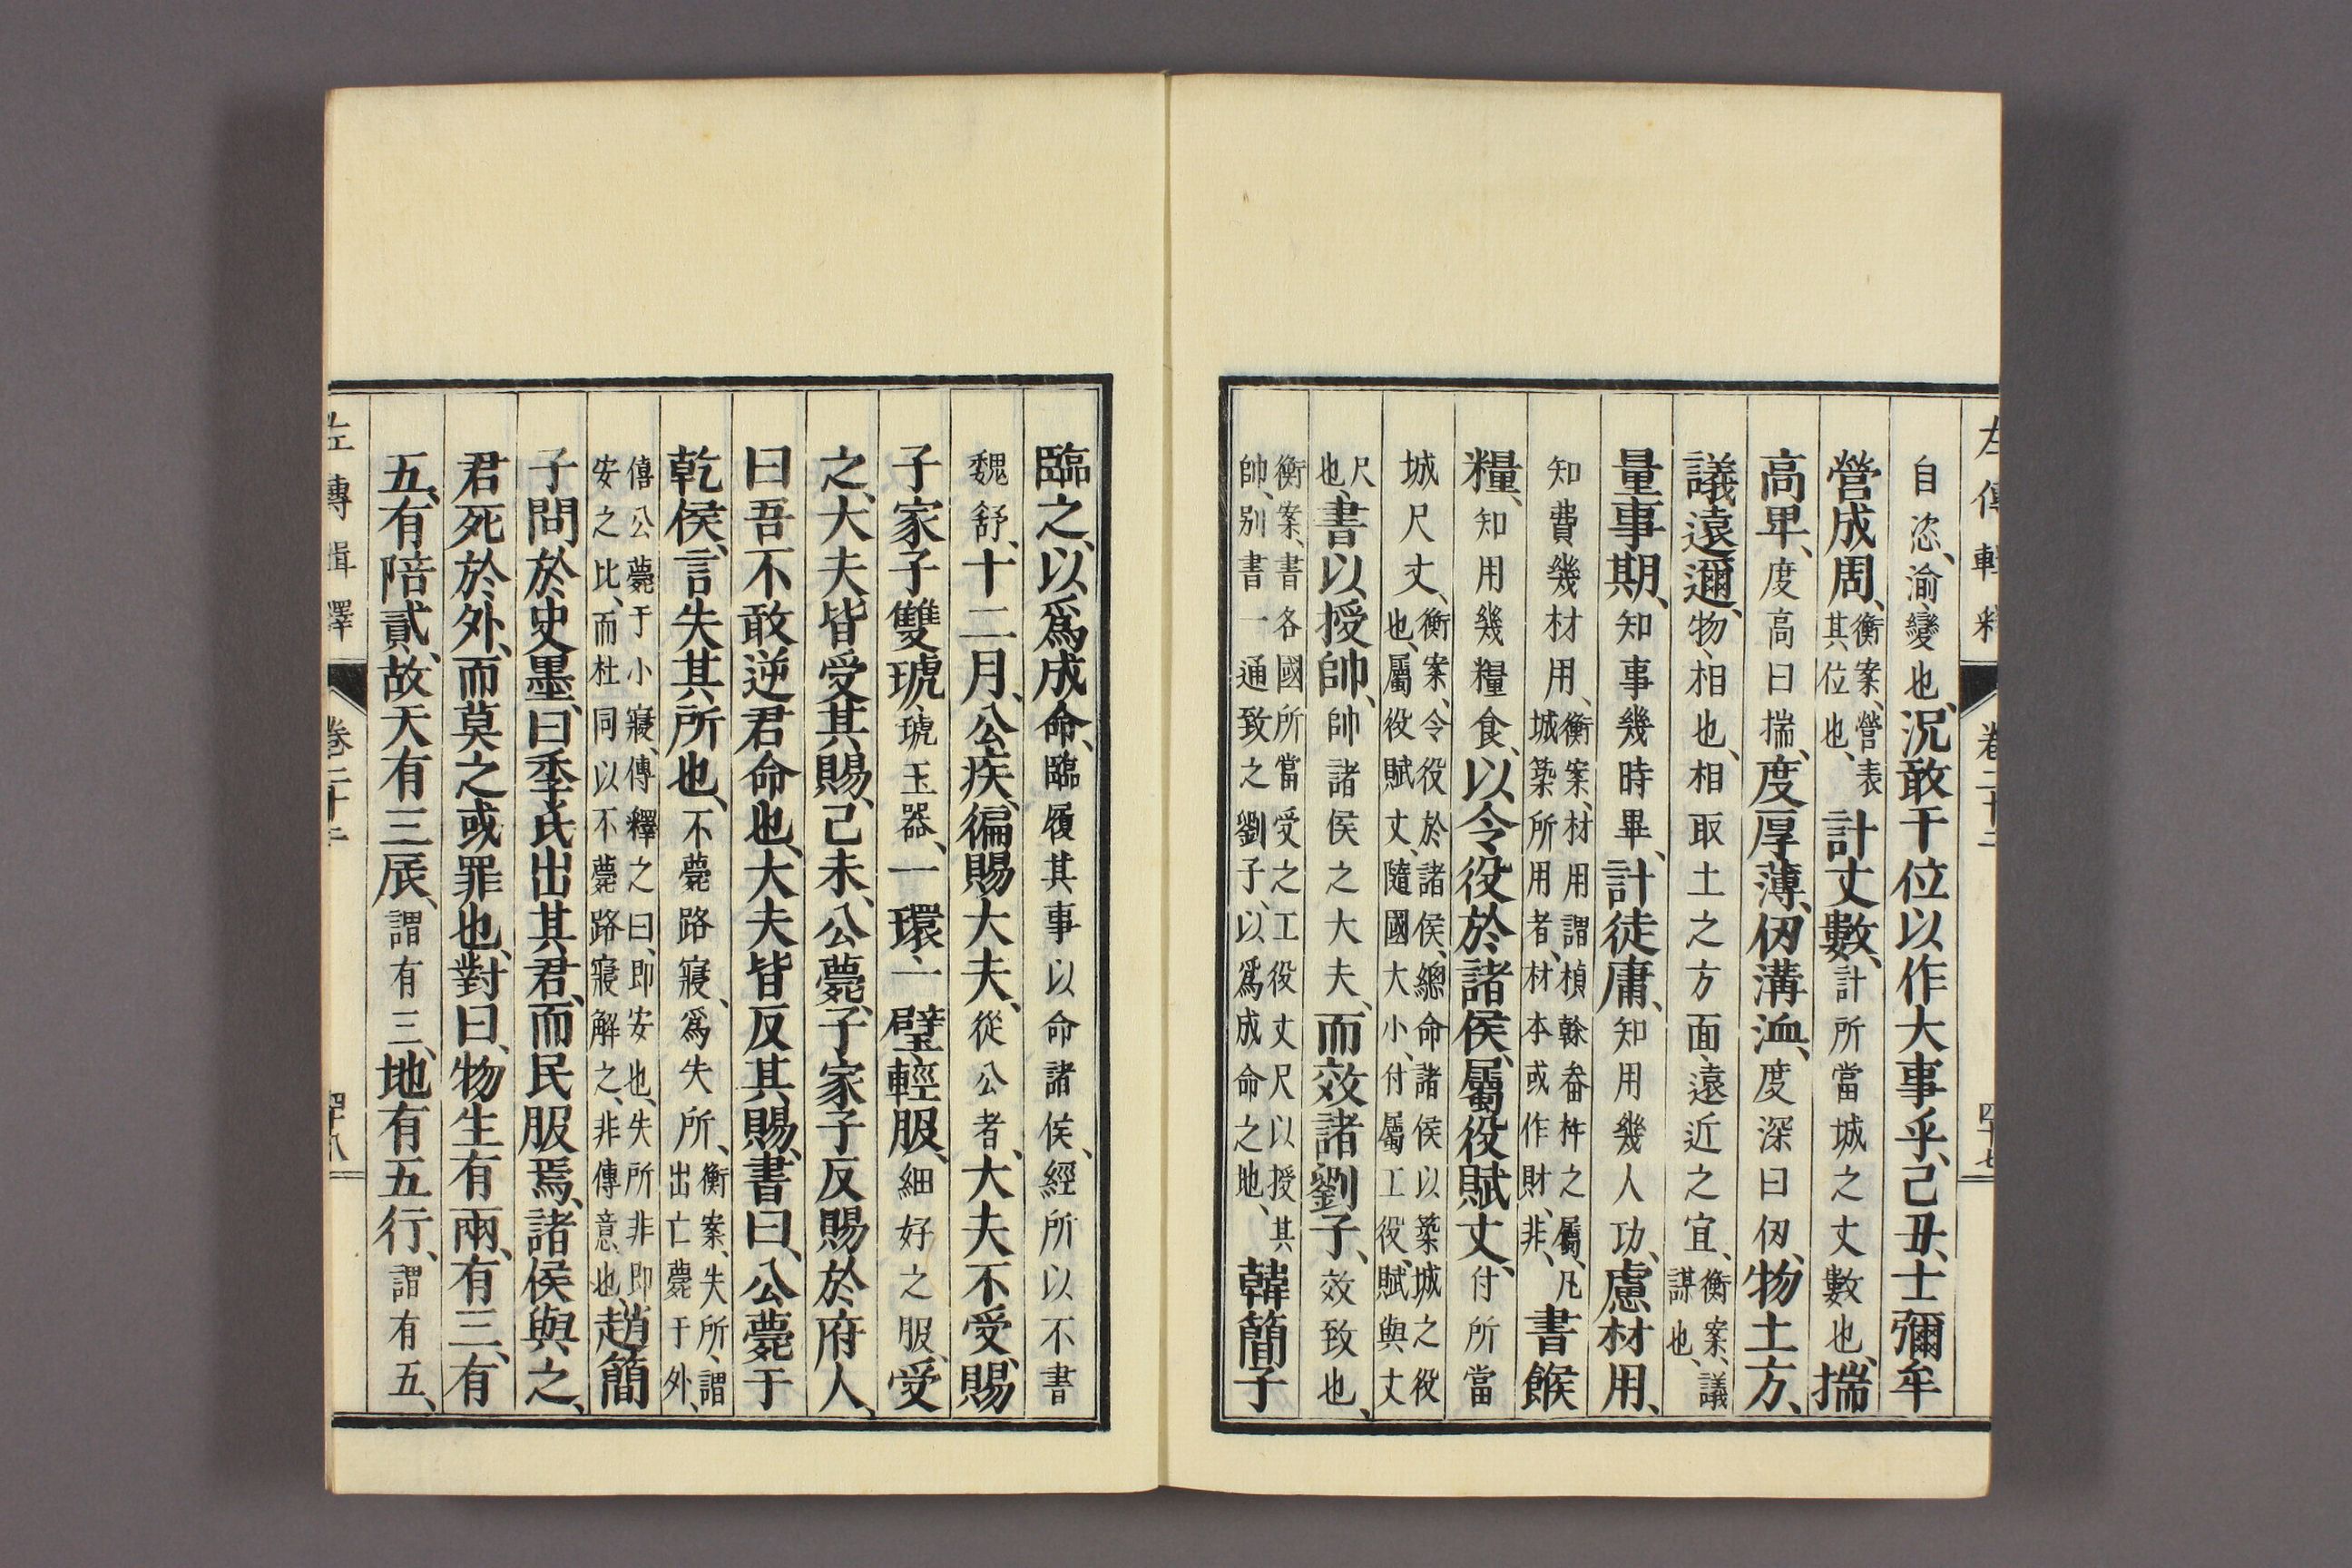 左傳輯釋 卷二十二 四十七
自恣、渝變也、況敢干位以作大事乎、己丑、士彌牟
營成周、衡案、營表其位也、計丈數、計所當城之丈數也、揣
高卑、度高曰揣、度厚薄、仞溝洫、度深曰仞、物土方、
議遠邇、物、相也、相取土之方面、遠近之宜、衡案、議謀也、
量事期、知事幾時畢、計徒庸、知用幾人功、慮材用、
知費幾材用、衡案、材用謂楨榦畚杵之屬、凡城築所用者、材本或作財、非、書餱
糧、知用幾糧食、以令役於諸侯、屬役賦丈、付所當
城尺丈、衡案、令役於諸侯、總命諸侯以築城之役也、屬役賦丈、隨國大小、付屬工役、賦與丈
尺也、書以授帥、帥諸侯之大夫、而效諸劉子、效致也、
衡案、書各國所當受之工役丈尺以授其帥、別書一通致之劉子、以爲成命之地、韓簡子
臨之、以爲成命、臨履其事以命諸侯、經所以不書
魏舒、十二月、公疾、徧賜大夫、從公者、大夫不受、賜
子家子雙琥、琥玉器、一環、一璧、輕服、細好之服、受
之、大夫皆受其賜、己未、公薨、子家子反賜於府人、
曰吾不敢逆君命也、大夫皆反其賜、書曰、公薨于
乾侯、言失其所也、不薨路寢、爲失所、衡案、失所、謂出亡薨于外、
僖公薨于小寢、傳釋之曰、即安也、失所非即安之比、而杜同以不薨路寢解之、非傳意也、趙簡
子問於史墨、曰季氏出其君、而民服焉、諸侯與之、
君死於外、而莫之或罪也、對曰、物生有兩、有三、有
五、有陪貳、故天有三辰、謂有三、地有五行、謂有五、
左傳輯釋 卷二十二 四十八